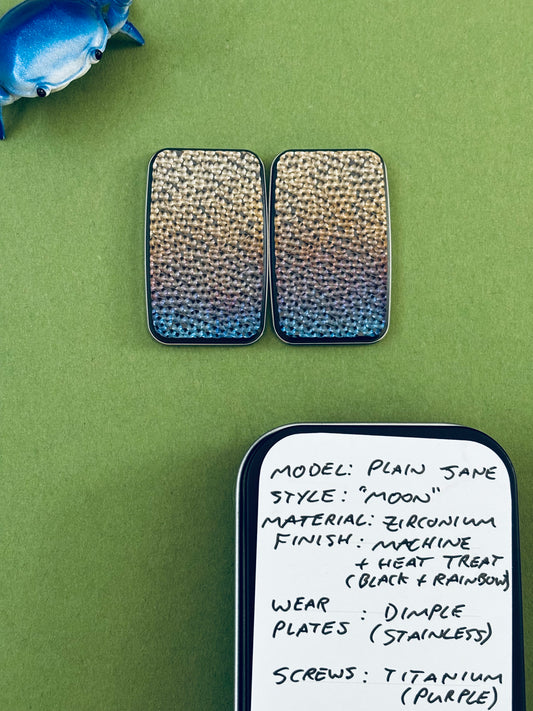 MODEL: PLAIN JANE
STYLE: "MOON"
MATERIAL: ZIRCONIUM
FINISH: MACHINE
+ HEAT TREAT
(BLACK + RAINBOW)
WEAR PLATES : DIMPLE
(STAINLESS)
SCREWS: TITANIUM
(PURPLE)